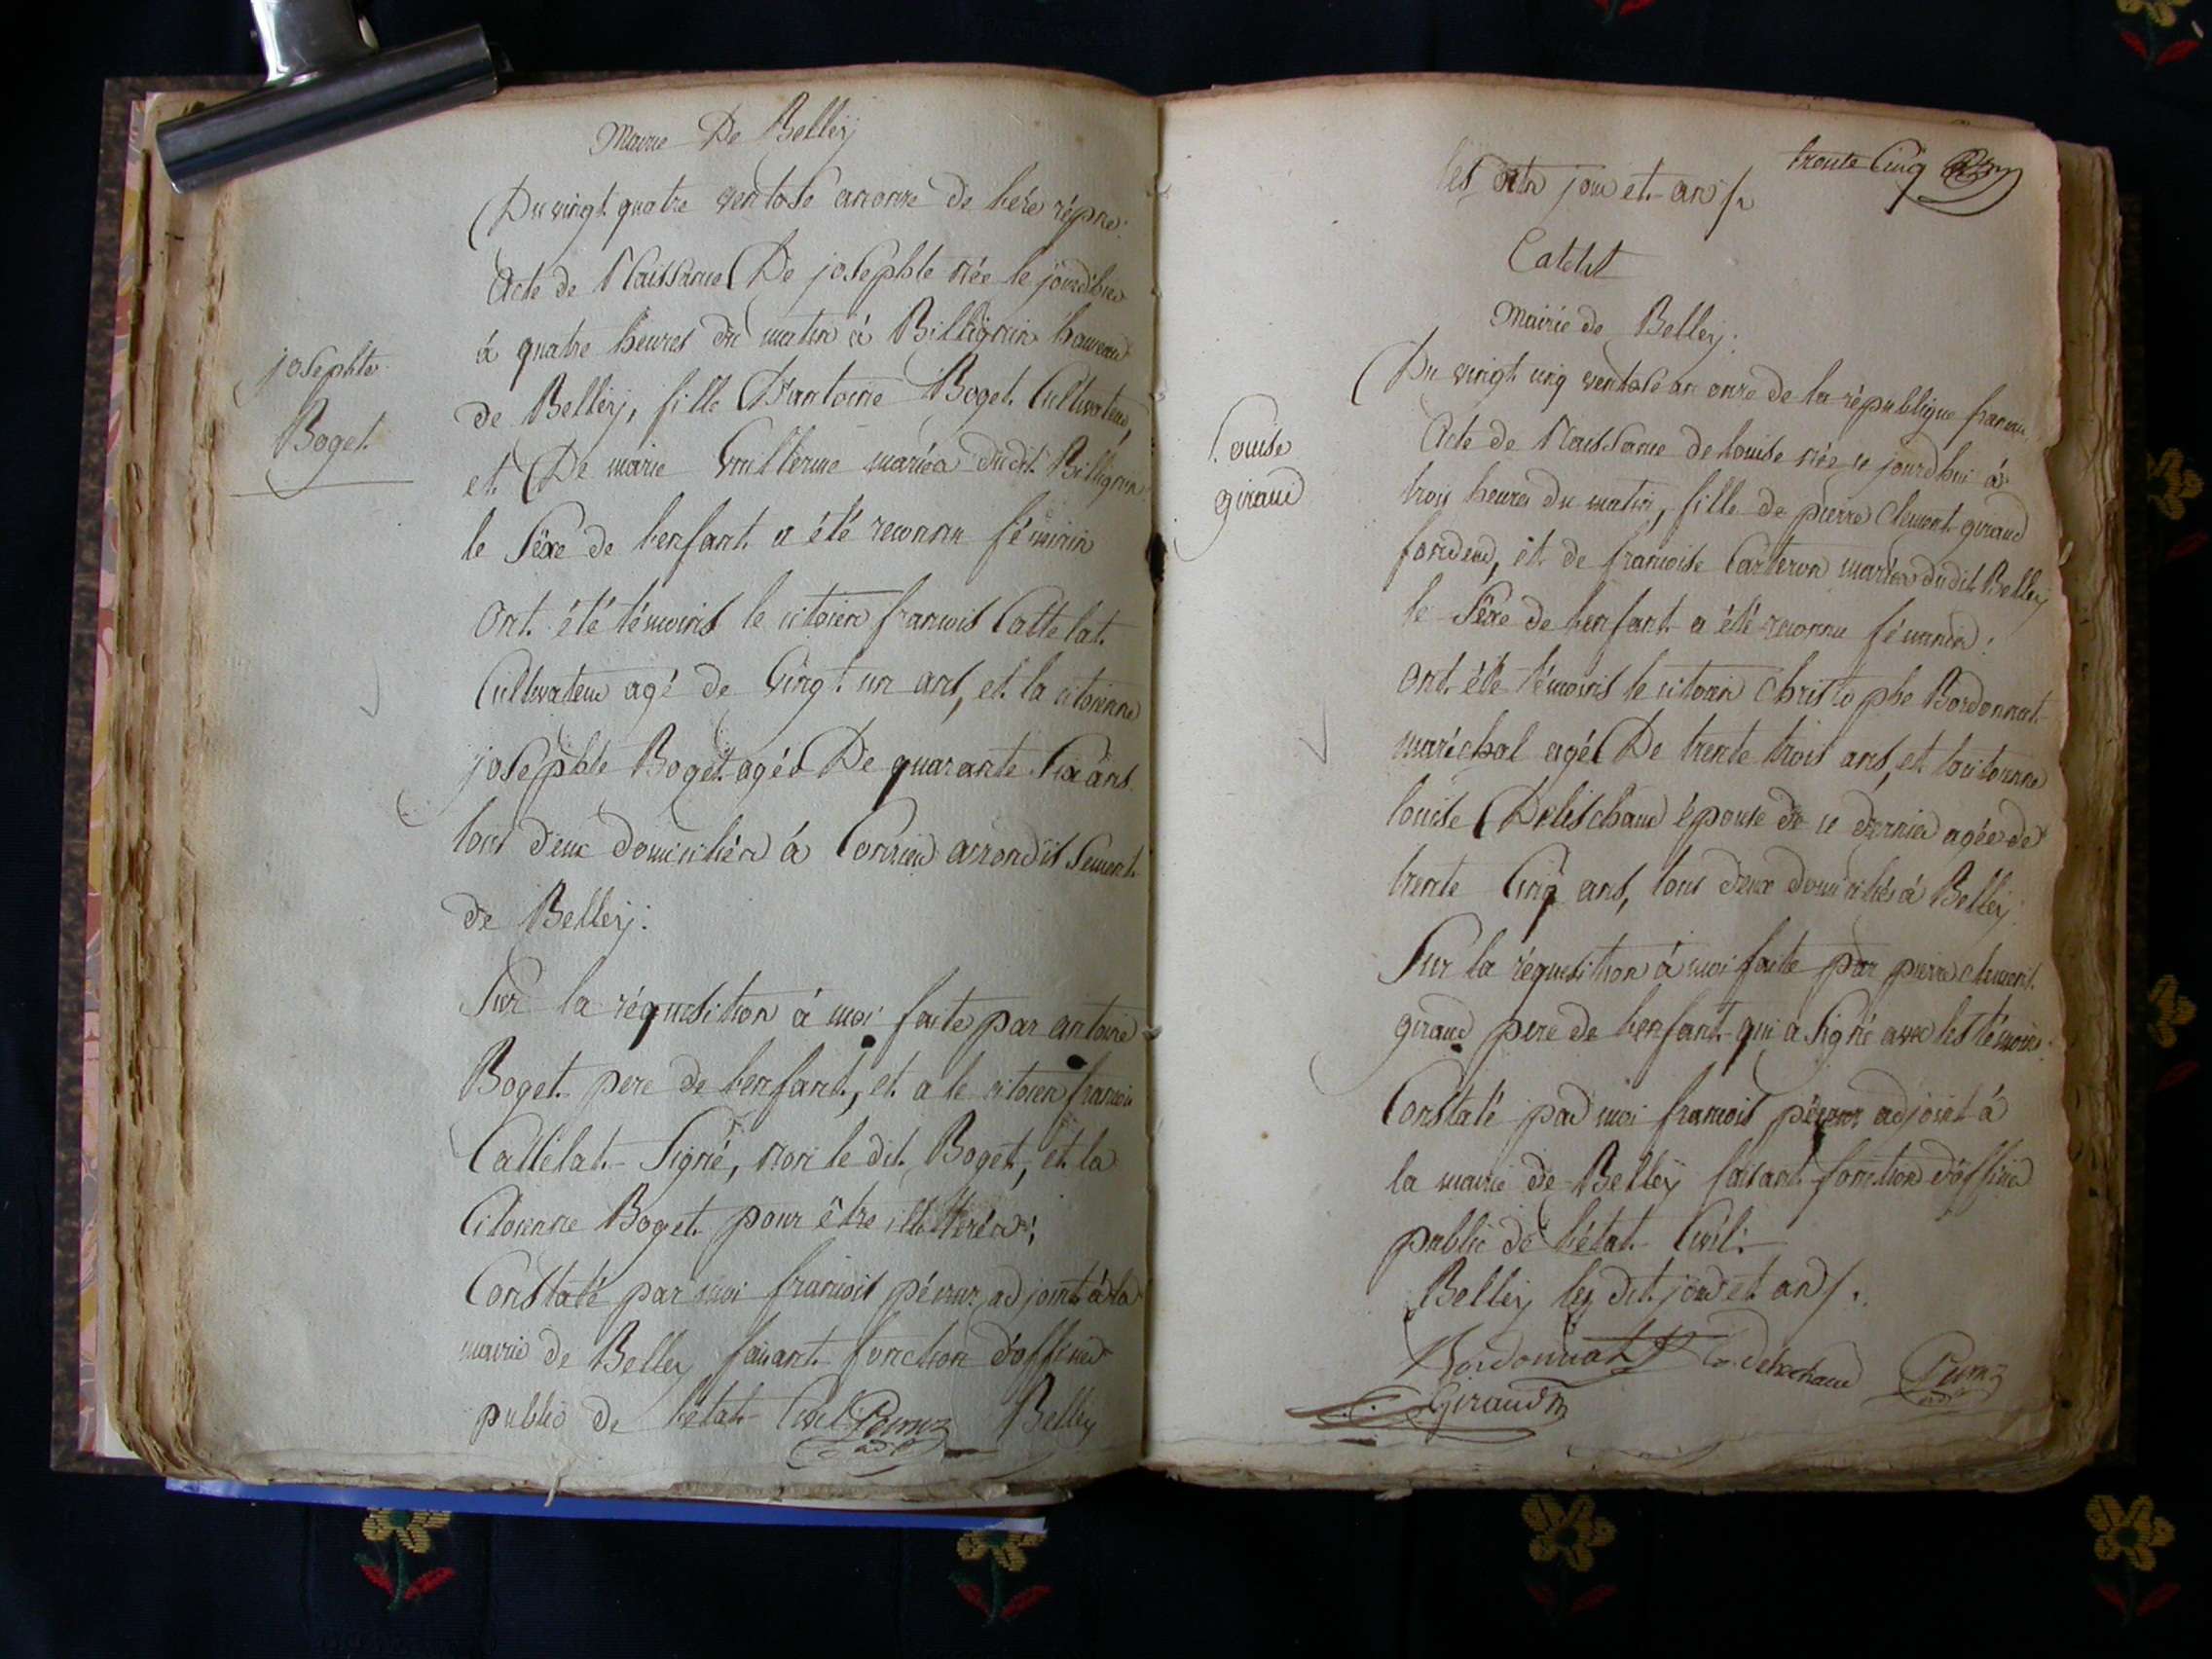 Mairie De Belley
Du vingt quatre ventose an onze de l'ére répne.
Acte de Naissance De josephte Née le jourd'hui
à quatre heures du matin à Billignin hameau
josephte
Boget
de Belley, fille D'antoine Boget Cultivateur,
et De marie Guillerme mariés dudit Billignin
le Séxe de l'enfant a été reconnu féminin
Ont été témoins le citoien francois Cattelat
Cultivateur agé de vingt un ans, et la citoienne
josephte Boget agée De quarante Six ans
tous deux domiciliés à arrondissement
de Belley.
Sur la réquisition à moi faite par antoine
Boget pere de l'enfant, et a le citoien francois
Cattélat Signé, Non le dit Boget, et la
Citoienne Boget pour être illettérés;
Constaté par moi francois adjoint à la
mairie de Belley faisant fonction d'officier
public de l'état Civil. Belley
trente Cinq
les dits jour et an
Catelat
Mairie de Belley.
Du vingt cinq ventose an onze de la république francaise
Louise
giraud
Acte de Naissance de louise née ce jourd'hui à
trois heures du matin, fille de pierre Clement giraud
fondeur, et de francoise Carteron mariés dudit Belley
le Séxe de l'enfant a été reconnu féminin.
Ont été témoins le citoien Christophe Bordonnat
maréchal agé De trente trois ans, et la citoienne
louise épouse de ce dernier agée de
trente Cinq ans, tous deux domiciliés à Belley.
Sur la réquisition à moi faite par pierre clement
giraud pere de l'enfant qui a Signé avec les témoins.
Constaté par moi francois adjoint à
la mairie de Belley faisant fonction d'officier
public de l'état Civil.
Belley les dit jour et an
Bordonnat
Giraud